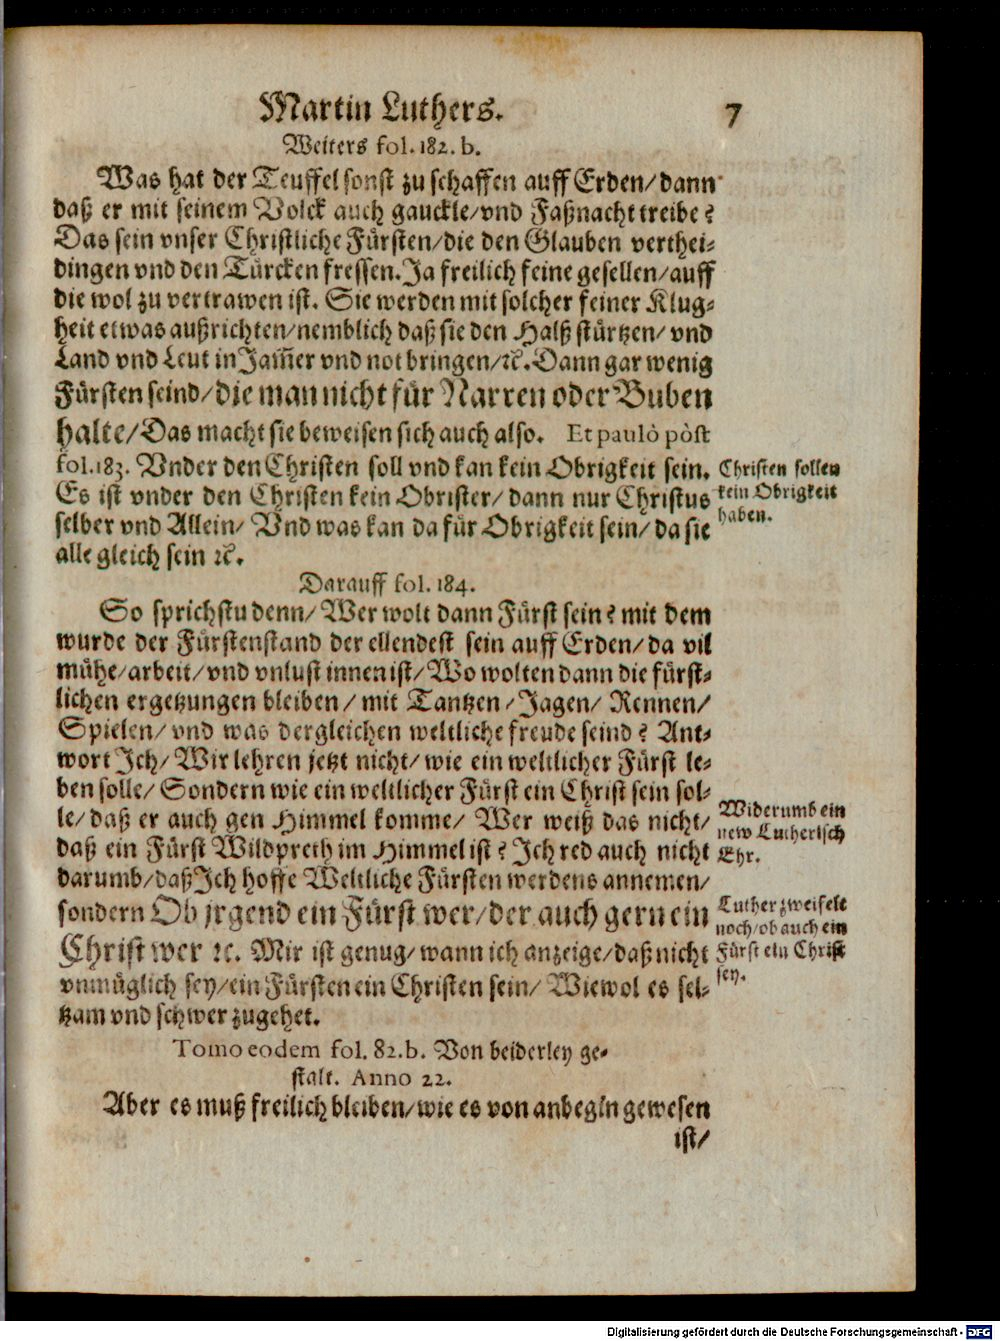 Martin Luthers. 7
Weiters fol. 182. b.
Was hat der Teuffel sonst zu schaffen auff Erden/ dann
daß er mit seinem Volck auch gauckle/ vnd Faßnacht treibe?
Das sein vnser Christliche Fürsten/ die den Glauben verthei-
dingen vnd den Türcken fressen. Ja freilich feine gesellen/ auff
die wol zu vertrawen ist. Sie werden mit solcher feiner Klug-
heit etwas außrichten/ nemblich daß sie den Halß stürtzen/ vnd
Land vnd Leut in Jam̃er vnd not bringen/ ꝛc. Dann gar wenig
Fürsten seind/ die man nicht für Narren oder Buben
halte/ Das macht sie beweisen sich auch also. Et paulò pòst
fol. 183. Vnder den Christen soll vnd kan kein Obrigkeit sein.
Es ist vnder den Christen kein Obrister/ dann nur Christus
selber vnd Allein/ Vnd was kan da für Obrigkeit sein/ da sie
alle gleich sein ꝛc.
Christen sollen
kein Obrigkeit
haben.
Darauff fol. 184.
So sprichstu denn/ Wer wolt dann Fürst sein? mit dem
wurde der Fürstenstand der ellendest sein auff Erden/ da vil
mühe/ arbeit/ vnd vnlust innen ist/ Wo wolten dann die fürst-
lichen ergetzungen bleiben/ mit Tantzen/ Jagen/ Rennen/
Spielen/ vnd was dergleichen weltliche freude seind? Ant-
wort Ich/ Wir lehren jetzt nicht/ wie ein weltlicher Fürst le-
ben solle/ Sondern wie ein weltlicher Fürst ein Christ sein sol-
le/ daß er auch gen Himmel komme/ Wer weiß das nicht/
daß ein Fürst Wildpreth im Himmel ist? Ich red auch nicht
darumb/ daß Ich hoffe Weltliche Fürsten werdens annemen/
sondern Ob jrgend ein Fürst wer/ der auch gern ein
Christ wer ꝛc. Mir ist genug/ wann ich anzeige/ daß nicht
vnmüglich sey/ ein Fürsten ein Christen sein/ Wiewol es sel-
tzam vnd schwer zugehet.
Widerumb ein
new Lutherisch
Ehr.
Luther zweifelt
noch/ ob auch ein
Fürst ein Christ
sey.
Tomo eodem fol. 82. b. Von beiderley ge-
stalt. Anno 22.
Aber es muß freilich bleiben/ wie es von anbegin gewesen
ist/
Digitalisierung gefördert durch die Deutsche Forschungsgemeinschaft - DFG